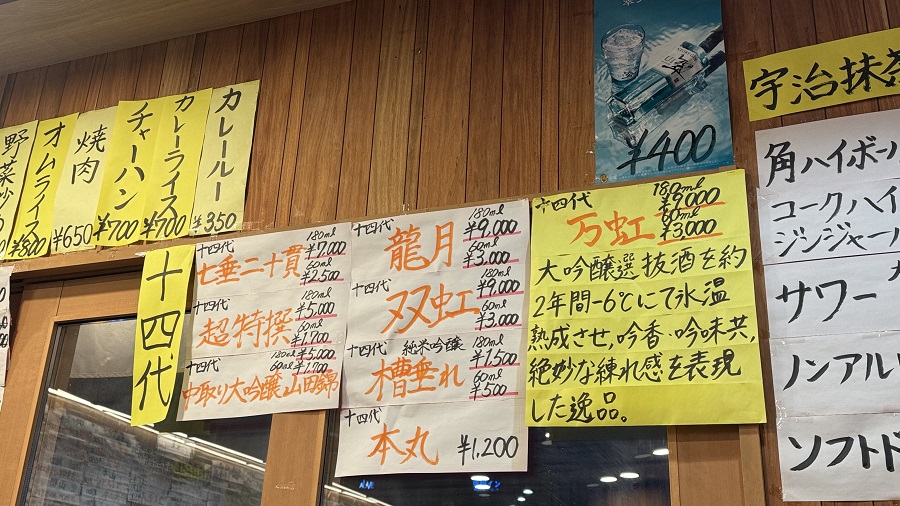 カレールー
¥350
カレーライス
¥700
チャーハン
¥700
焼肉
¥650
オムライス
¥800
野菜炒め
¥400
宇治抹茶
十四代
十四代
七垂二十貫
180ml
¥7,000
60ml
¥2,500
十四代
超特撰
180ml
¥5,000
60ml
¥1,700
十四代
180ml
¥5,000
60ml
¥1,700
中取り大吟醸山田錦
十四代
龍月
180ml
¥9,000
60ml
¥3,000
十四代
双虹
180ml
¥9,000
60ml
¥3,000
十四代 純米吟醸
槽垂れ
180ml
¥1,500
60ml
¥500
十四代
本丸 ¥1,200
十四代
万虹
180ml
¥9,000
60ml
¥3,000
大吟醸選抜酒を約
2年間-6℃にて氷温
熟成させ,吟香・吟味共,
絶妙な練れ感を表現
した逸品。
角ハイボール
コークハイ
ジンジャー
サワー
ノンアル
ソフトド